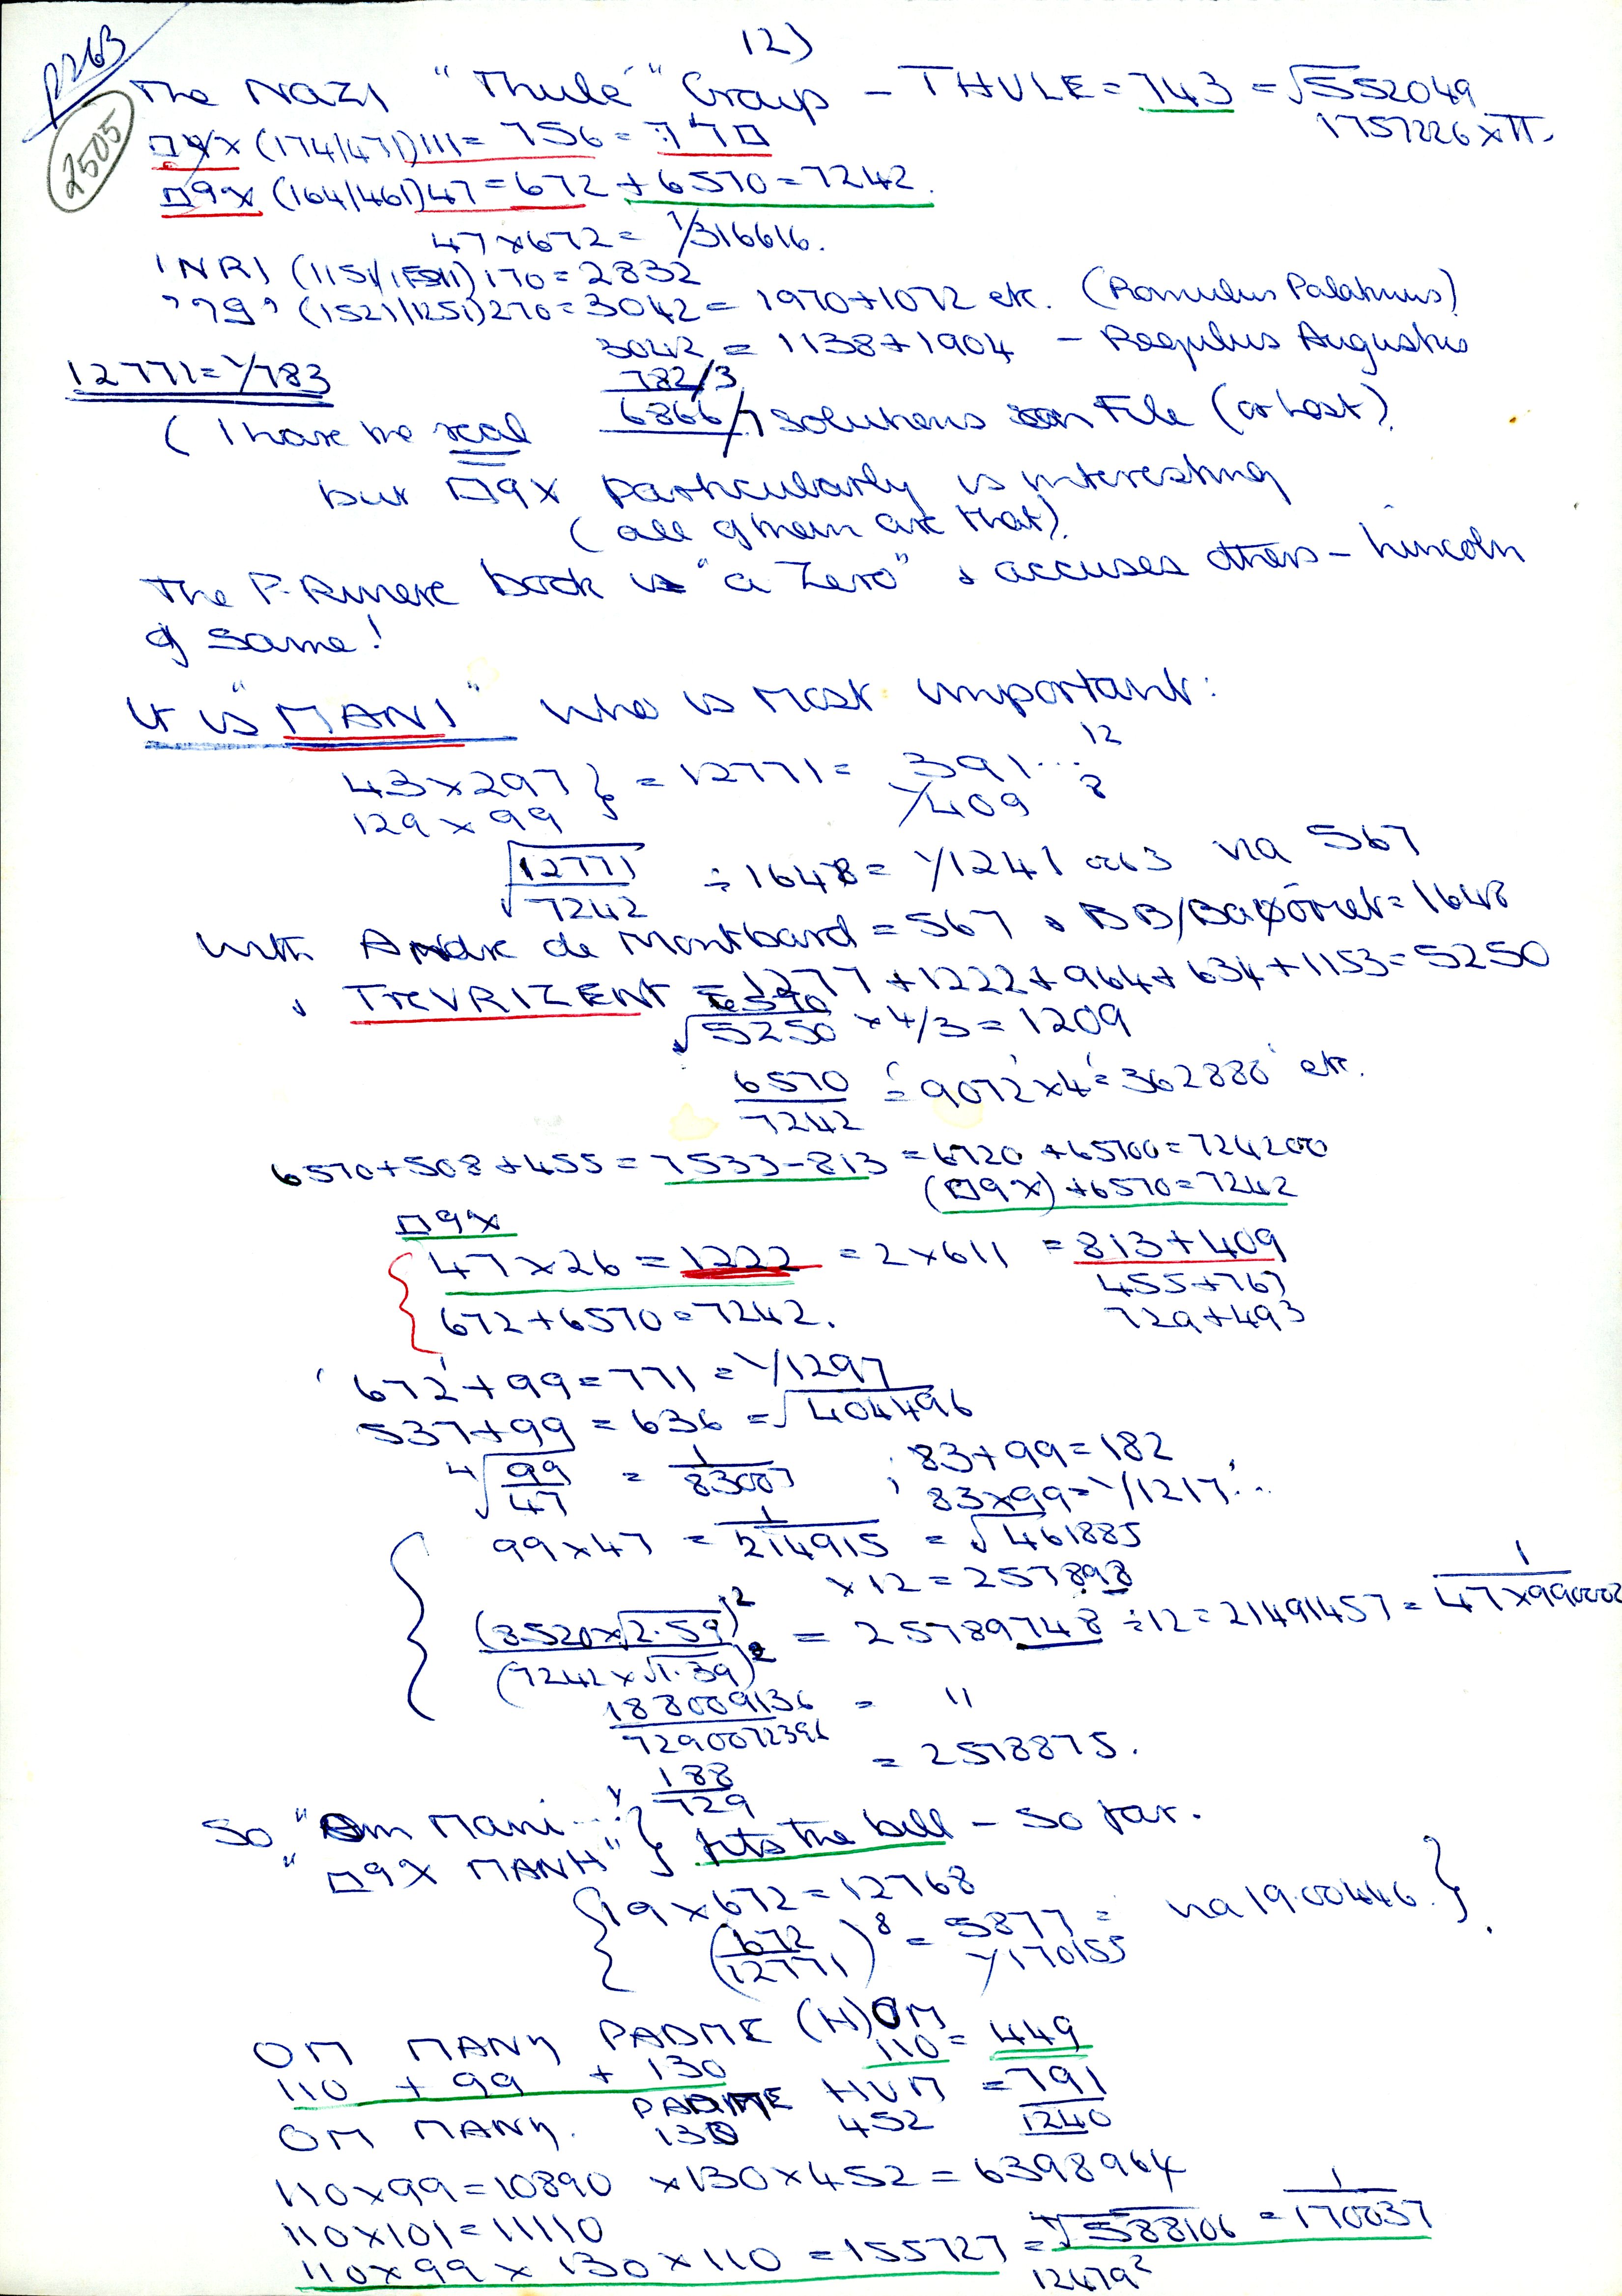 12)
P263
2505
The NAZI "Thule" Group - THULE = 743 = √552049
1757226 x π.
(174/471) 111 = 756 = 770
□9x (164/461) 47 = 672 + 6570 = 7242.
47 x 672 = 1/316616.
INRI (1151/1511) 170 = 2832
(1521/1251) 270 = 3042 = 1970 + 1072 etc. (Romulus Palatinus)
3042 = 1138 + 1904 - Regulus Augustus
12771 = 1/783
782/3
6866/7
(I have the real solutions on File (or lost).
but □9x particularly is interesting
(all of them are that).
The P. book is "a Zero" & accuses others - Lincoln
of same!
It is "MANI" who is most important:
43 x 297 } = 12771 = 391...12
129 x 99 1/409 ?
√12771/7242 ÷ 1648 = 1/1241 0063 via 567
with Andre de Montbard = 567 & BB/Baφomet = 1648
& TreVRIZENT = 1277 + 1222 + 964 + 634 + 1153 = 5250
√6570/5250 x 4/3 = 1209
6570/7242 = '9072' x 4 = '362888' etc.
6570 + 508 + 455 = 7533 - 813 = 6720 + 65700 = 724200
(□9x) + 6570 = 7242
□9x
47 x 26 = 1222 = 2 x 611 = 813 + 409
455 + 767
672 + 6570 = 7242. 729 + 493
'672' + 99 = 771 = 1/1297
537 + 99 = 636 = √404496
4√99/47 = 1/83007 ; 83 + 99 = 182
83 x 99 = 1/1217...
99 x 47 = 1/214915 = √461885
x 12 = 257898
(3.520 x √2.59)2/(7242 x √1.39)2 = 25789748 ÷ 12 = 21491457 = 1/47 x 990002
188009136/7290072396 = "
188/729 = 2578875.
So "Om Mani...." } fits the bill - so far.
"□9X MANH"
{19 x 672 = 12768
(672/12771)8 = 5877 = via 19.00446.}
1/170155
OM MANY PADME (H)OM
110 + 99 + 130 110 = 449
OM MANY. PADME HUM = 791
130 452 1240
110 x 99 = 10890 x 130 x 452 = 6398964
110 x 101 = 11110
110 x 99 x 130 x 110 = 155727 = 4√588106 = 1/170037
12479²